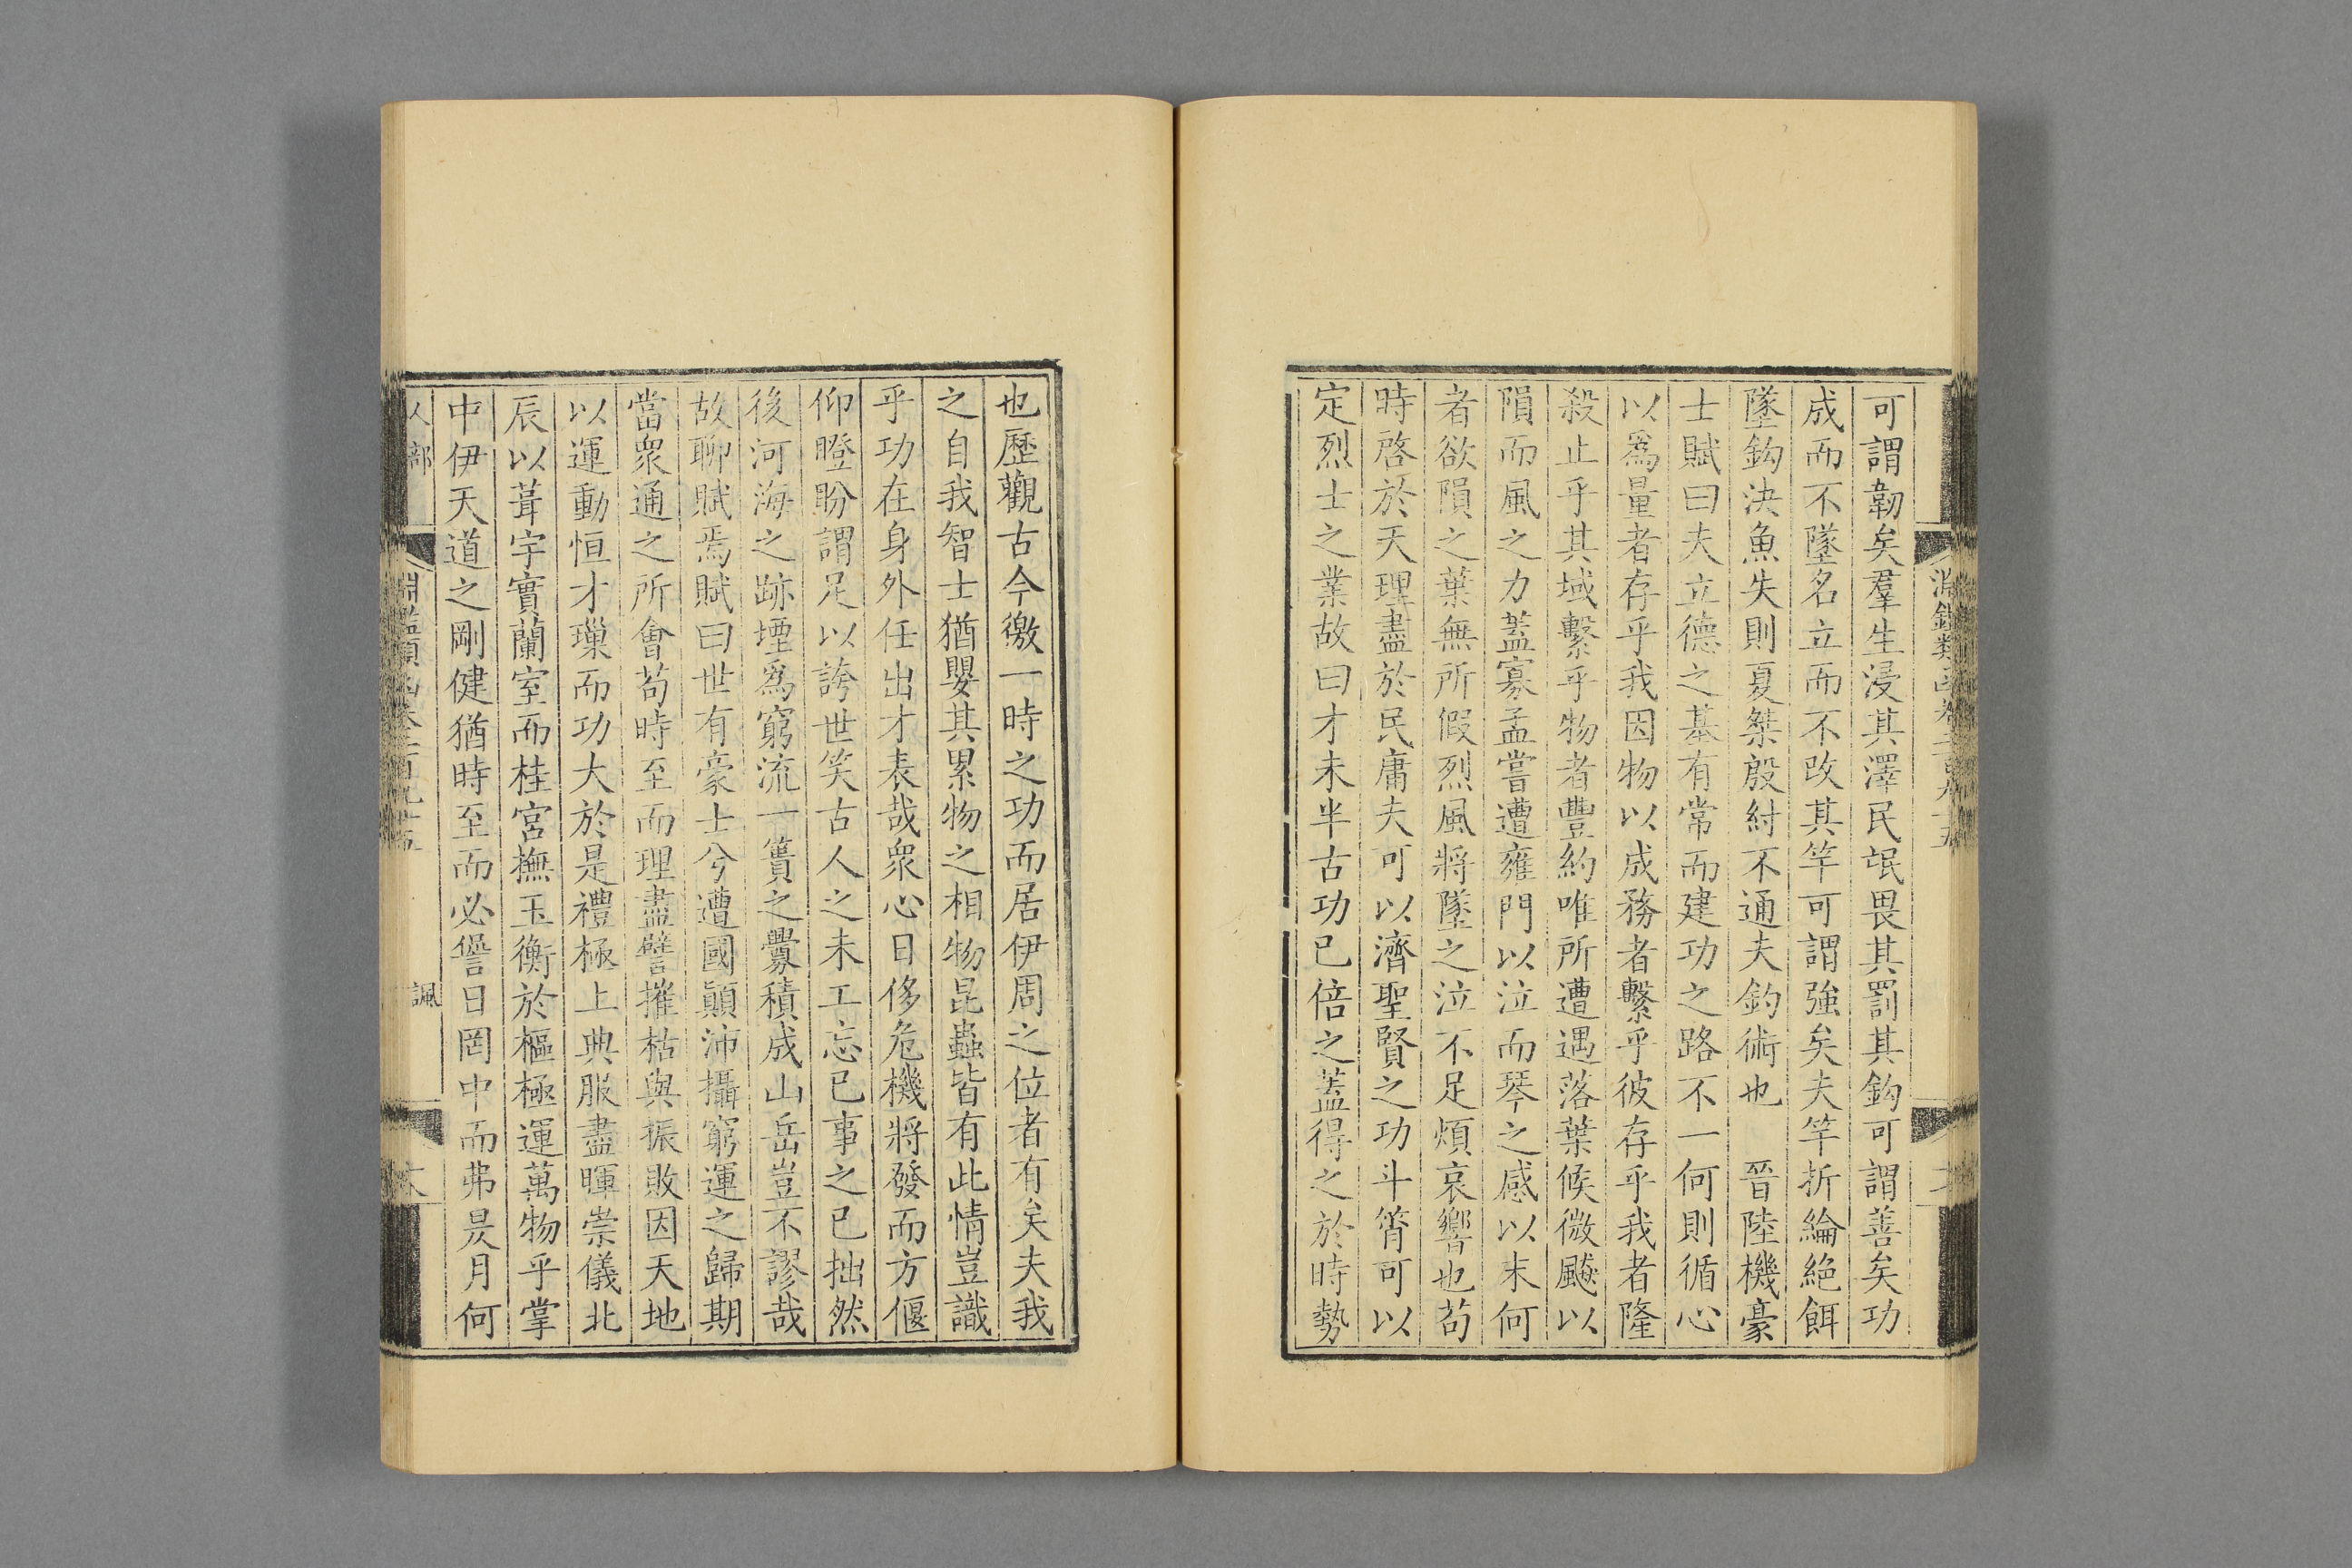 淵鑑類函卷二百九十五
可謂韌矣羣生浸其澤民氓畏其罰其鈎可謂善矣功
成而不墜名立而不改其竿可謂強矣夫竿折綸絕餌
墜鈎決魚失則夏桀殷紂不通夫釣術也　晉陸機豪
士賦曰夫立德之基有常而建功之路不一何則循心
以爲量者存乎我因物以成務者繫乎彼存乎我者隆
殺止乎其域繫乎物者豐約唯所遭遇落葉候微颷以
隕而風之力蓋寡孟嘗遭雍門以泣而琴之感以末何
者欲隕之葉無所假烈風將墜之泣不足煩哀響也苟
時啓於天理盡於民庸夫可以濟聖賢之功斗筲可以
定烈士之業故曰才未半古功已倍之蓋得之於時勢
也歷觀古今徼一時之功而居伊周之位者有矣夫我
之自我智士猶嬰其累物之相物昆蟲皆有此情豈識
乎功在身外任出才表哉衆心日侈危機將發而方偃
仰瞪盼謂足以誇世笑古人之未工忘已事之已拙然
後河海之跡堙爲窮流一簣之釁積成山岳豈不謬哉
故聊賦焉賦曰世有豪士兮遭國顚沛攝窮運之歸期
當衆通之所會苟時至而理盡譬摧枯與振敗因天地
以運動恒才璅而功大於是禮極上典服盡暉崇儀北
辰以葺宇實蘭室而桂宮撫玉衡於樞極運萬物乎掌
中伊天道之剛健猶時至而必諐日罔中而弗昃月何
人部
淵鑑類函卷二百九十五
諷